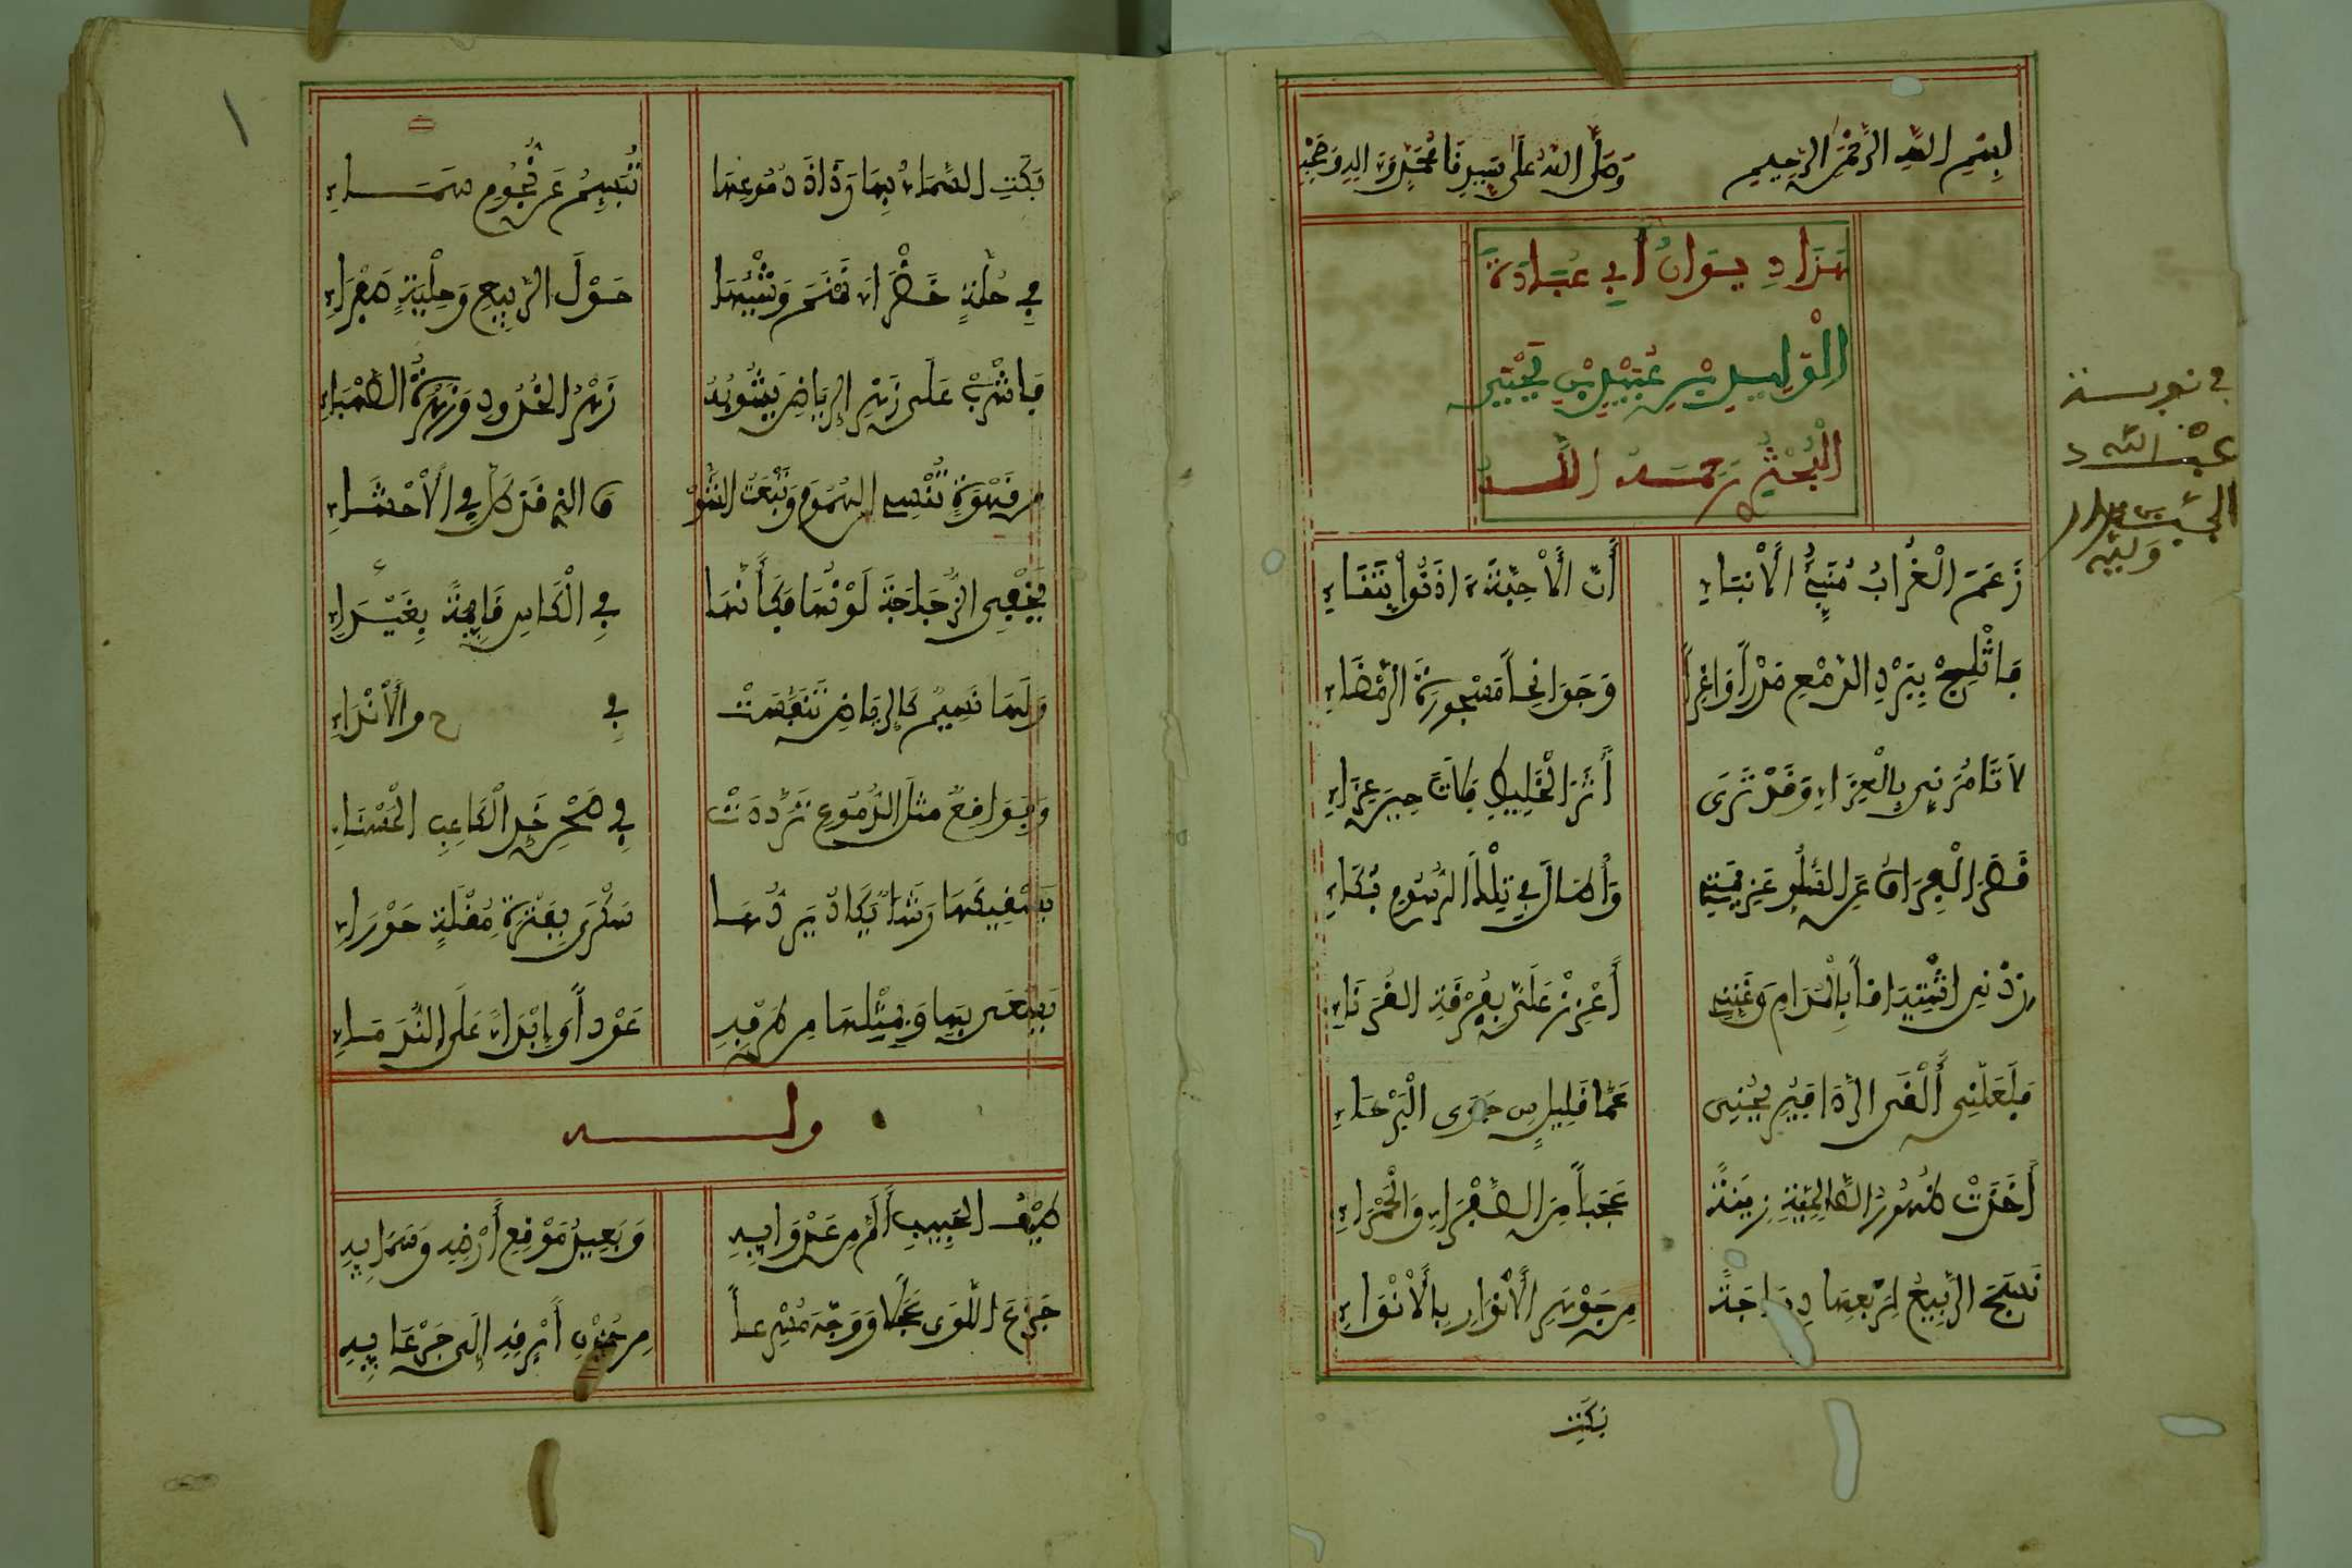 بسم الله الرحمن الرحيم وصلى الله على سيدنا محمد وءاله وصحبه
هذا ديوان أبي عبادة
الوليد بن عبيد بن يحيى
البحتري رحمه الله
زَعَمَ الْغُرَابُ مُنَبِّئُ الْأَنْبَاءِ أَنَّ الْأَحِبَّةَ ءَاذَنُوا بِتَنَاءِ
فَاثْلِجْ بِبَرْدِ الدَّمْعِ صَدْراً وَاغِراً وَجَوَانِحاً مَسْجُورَةَ الرَّمْضَاءِ
لَا تَأْمُرَنِّي بِالْعَزَاءِ وَقَدْ تَرَى أَثَرَ الْخَلِيطِ فَلَاتَ حِينَ عَزَاءِ
قَصَرَ الْفِرَاقُ عَنِ السُّلُوِّ عَزِيمَتِي وَأَطَالَ فِي تِلْكَ الرُّسُومِ بُكَاءِ
زِدْنِي اشْتِيَاقاً بِالْمُدَامِ وَغَنِّنِي أَعْزِزْ عَلَيَّ بِفُرْقَةِ الْقُرَنَاءِ
فَلَعَلَّنِي أَلْقَى الرَّدَى فَيُرِيحُنِي عَمَّا قَلِيلٍ مِنْ جَوَى الْبُرَحَاءِ
أَخَذَتْ ظُهُورُ الصَّالِحِيَّةِ زِينَةً عَجَباً مِنَ الصَّفْرَاءِ وَالْحَمْرَاءِ
نَسَجَ الرَّبِيعُ لِرَبْعِهَا دِيبَاجَةً مِنْ جَوْهَرِ الْأَنْوَارِ بِالْأَنْوَاءِ
بَكَتِ
عبد الله
بَكَتِ السَّمَاءُ بِهَا رَذَاذَ دُمُوعِهَا تُبْسِمُ عَنْ نُجُومِ سَمَاءِ
فِي حُلَّةٍ خَضْرَاءَ نَمْنَمَ وَشْيَهَا حَوْكَ الرَّبِيعِ وَحِلْيَةٍ صَفْرَاءِ
فَاشْرَبْ عَلَى زَهْرِ الرِّيَاضِ يَشُوبُهُ زَهْرُ الْخُدُودِ وَزَهْرَةُ الصَّهْبَاءِ
مِنْ قَهْوَةٍ تُنْسِي الْهُمُومَ وَتَبْعَثُ الشَّوْ قَ الذِي قَدْ ضَلَّ فِي الْأَحْشَاءِ
يُخْفِي الزُّجَاجَةَ لَوْنُهَا فَكَأَنَّهَا فِي الْكَاسِ قَائِمَةٌ بِغَيْرِ إِنَاءِ
وَلَهَا نَسِيمٌ كَالرِّيَاضِ تَنَفَّسَتْ فِي ح والْأَنْدَاءِ
وَفَوَاقِعٌ مِثْلَ الدُّمُوعِ تَرَدَّدَتْ فِي صَحْنِ خَدِّ الْكَاعِبِ الْحَسْنَاءِ
يَسْقِيكَهَا رَشَأٌ يَكَادُ يَرُدُّهَا سَكْرَى بِفَتْرَةِ مُقْلَةٍ حَوْرَاءِ
يَسْعَى بِهَا وَبِمِثْلِهَا مِنْ طَرْفِهِ عَوْداً وَإِبْدَاءً عَلَى النُّدَمَاءِ
وله
طَيْفُ الْحَبِيبِ أَلَمَّ مِنْ عُدَوَائِهِ وَبَعِيدِ مَوْقِعِ أَرْضِهِ وَسَمَائِهِ
جَزَعَ اللَّوَى عَجِلاً وَوَجَّهَ مُسْرِعاً مِنْ حَزْنِ أَبْرَقِهِ إِلَى جَرْعَائِهِ